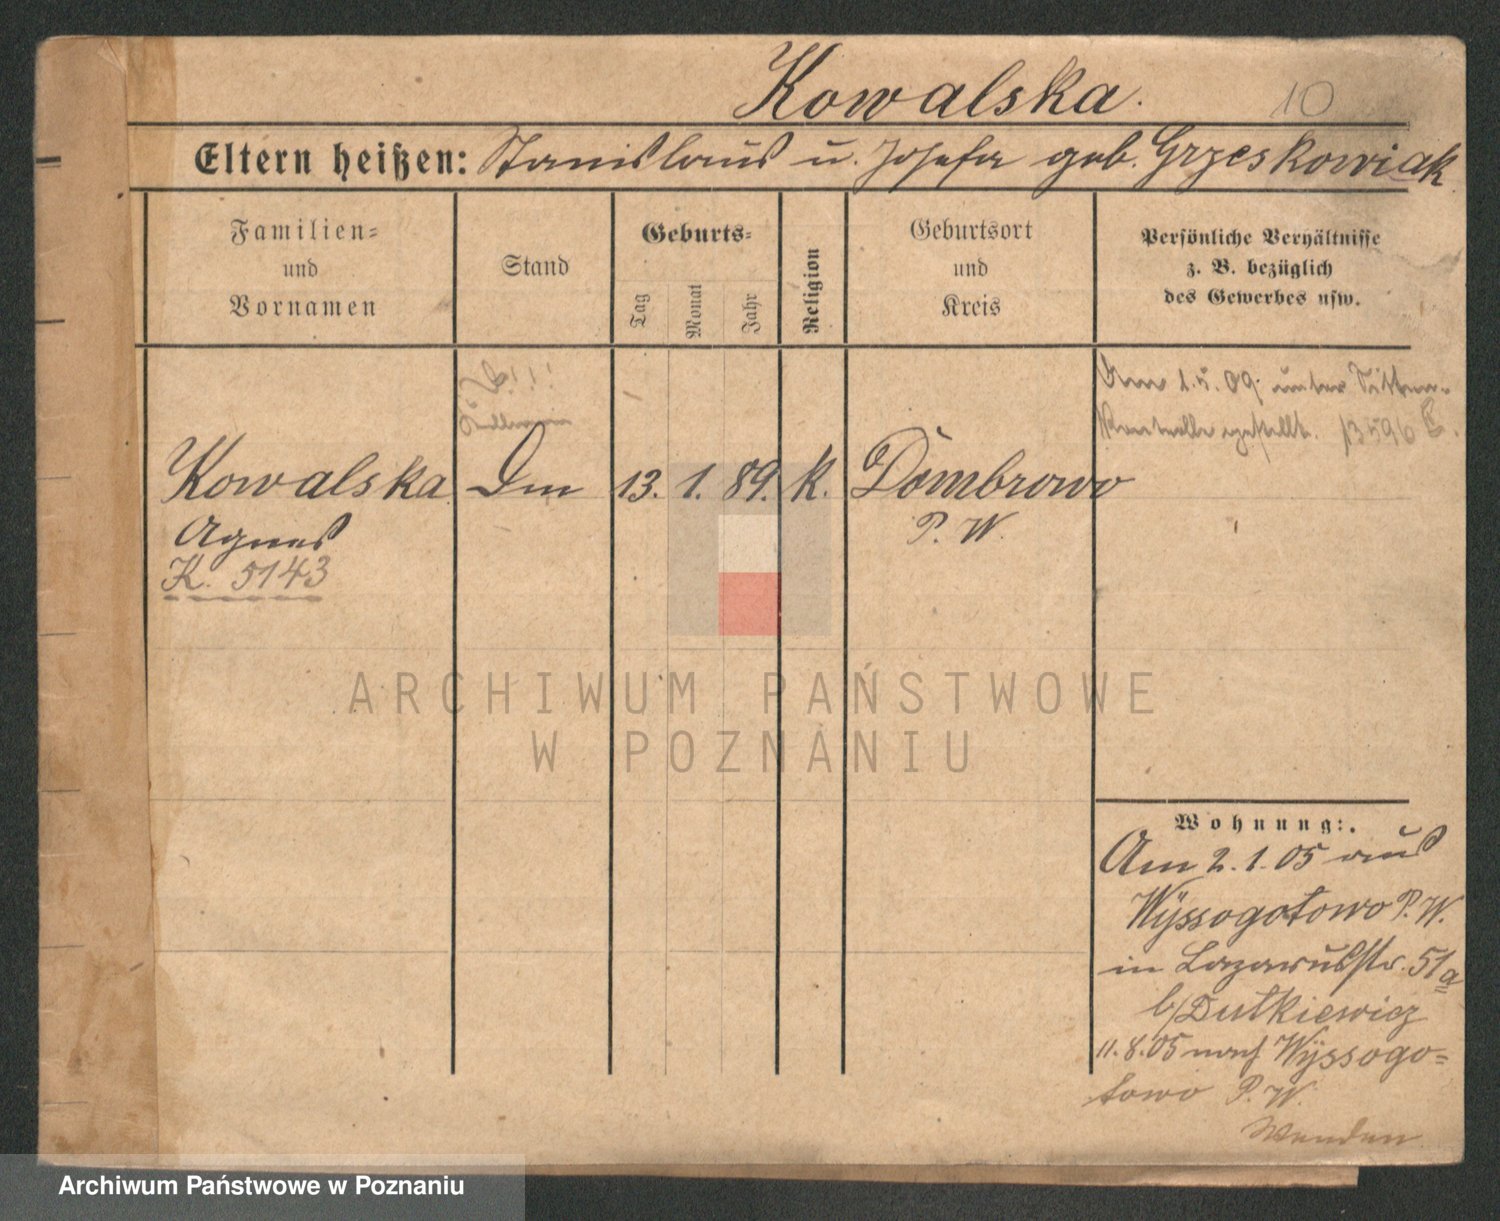 Kowalska.
10
Eltern heißen: Stanislaus u. Josefa geb. Grzeskowiak
Familien-
und
Vornamen
Stand
Geburts-
Tag
Monat
Jahr
Religion
Geburtsort
und
Kreis
Persönliche Verhältnisse
z. B. bezüglich
des Gewerbes usw.
Am 1.5.09. unter Sitten-
Kontrolle gestellt. 13596
Kowalska Dm 13. 1. 89. K. Dombrowo
Agnes
P. W.
K. 5143
ARCHIWUM PAŃSTWOWE
W POZNANIU
Wohnung:
Am 2.1.05 aus
Wyssogotowo P. W.
in Lazarusstr. 51a
b/Dutkiewicz
11.8.05 nach Wyssogo=
towo P. W.
Wenden
Archiwum Państwowe w Poznaniu